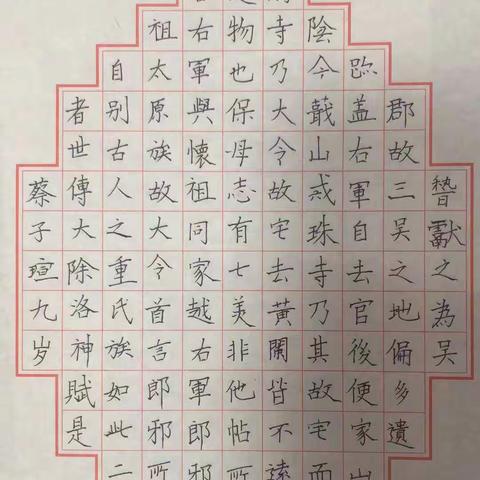 獻之為吳
郡故三吳之地偏多遺
跡蓋右軍自去官後便家山
陰今蕺山戒珠寺乃其故宅而
寺乃大令故宅去黃閎皆不遠
物也保母志有七美非他帖所
右軍與懷祖同家越右軍郎邪
祖太原族故大令首言郎邪所
自别古人之重氏族如此二
者世傳大除洛神賦是
蔡子瑄九岁